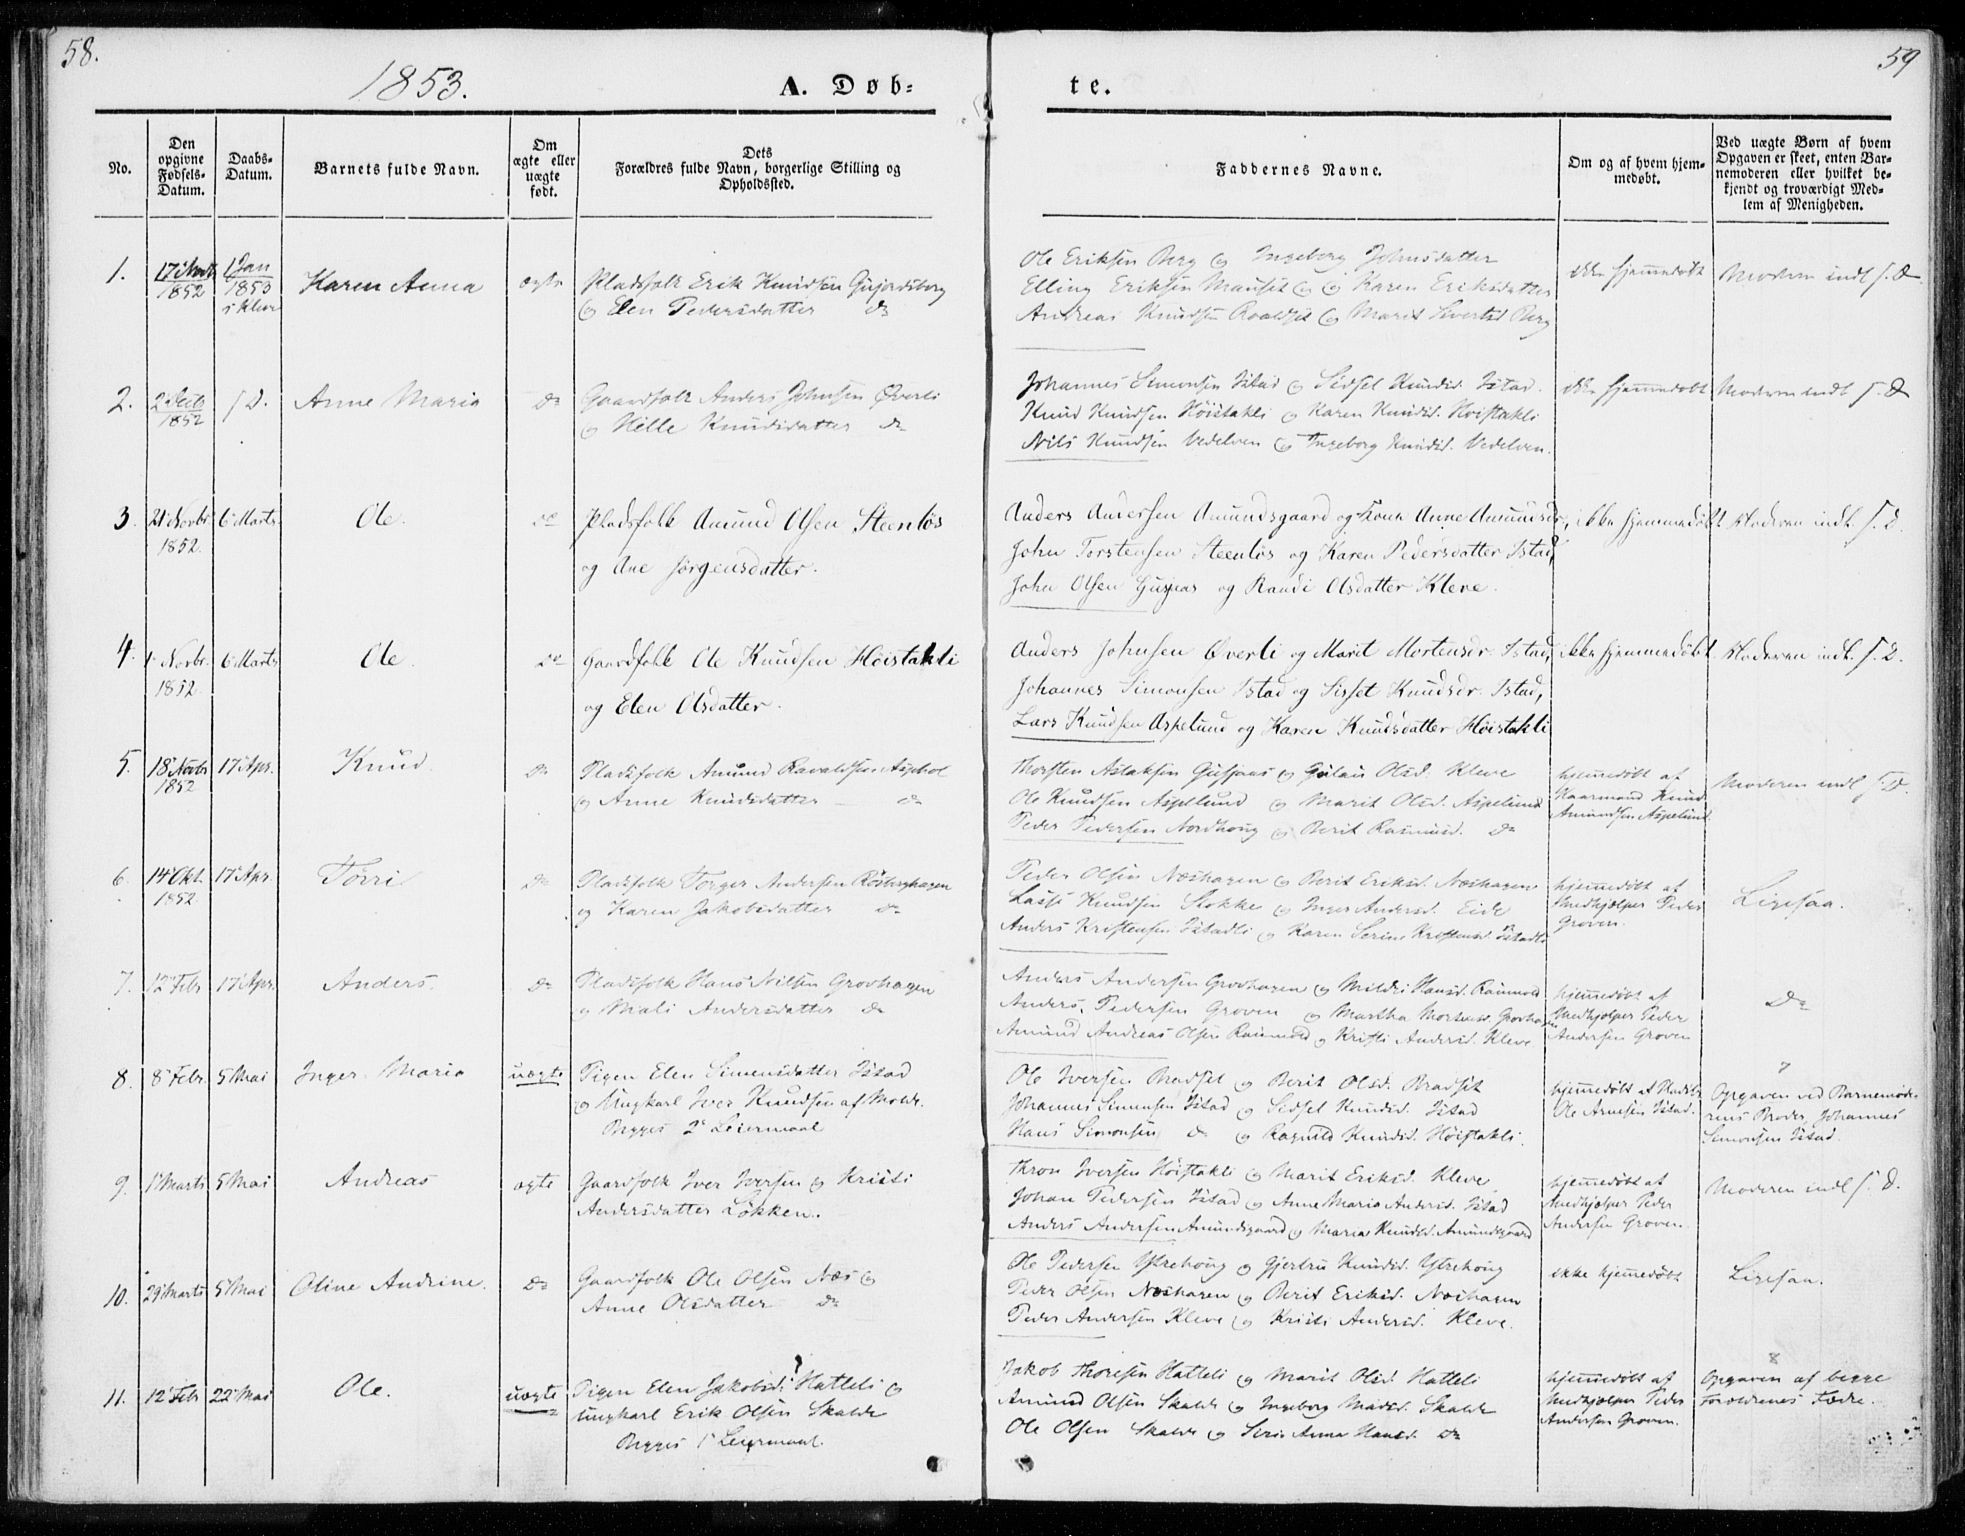 58.
59
1853.
A. Døb=
te.
No.
Den opgivne Fødsels-Datum.
Daabs-Datum.
Barnets fulde Navn.
Om ægte eller uægte født.
Dets Forældres fulde Navn, borgerlige Stilling og Opholdssted.
Faddernes Navne.
Om og af hvem hjemmedøbt.
Ved uægte Børn af hvem Opgaven er skeet, enten Barnemoderen eller hvilket bekjendt og troværdigt Medlem af Menigheden.
1.
1852
1 Jan 1853
Karen Anna
ægte
Pladsfolk Erik Knudsen
og Elen Pedersdatter do
Ole Eriksen Berg og Ingeborg Johnsdatter
Elling Eriksen og Karen Eriksdatter
Andreas Knudsen og Marit Sivertsd Berg
ikke hjemmedøbt
Moderen indl. s. D.
2.
1852
s D.
Anne Maria
do
Gaardfolk Anders Johnsen Øverli
og Knudsdatter do
Johannes Simonsen Istad og Sidsel Knudsd. Istad.
Knud Knudsen Höistakli og Karen Knudsd. Hoistakli
Nils Knudsen Vedelven og Ingeborg Knudsd. Vedelven.
ikke hjemmedøbt
Moderen indl s. D
3.
21 Novbr 1852.
6 Marts
Ole.
do
Pladsfolk Amund Olsen Steenløs
og Ane Jørgensdatter.
Anders Andersen Amundsgaard og Kone Anne Amundsdr,
John Torstensen Steenløs og Karen Pedersdatter Istad,
John Olsen Gusjaas og Randi Olsdatter Kleve.
ikke hjemmedøbt
Moderen indt. s. D.
4.
1 Novbr. 1852.
6 Marts
Ole.
do
Gaardfolk Ole Knudsen Höistakli
og Elen Olsdatter.
Anders Johnsen Øverli og Marit Mortensdr. Istad,
Johannes Simonsen Istad og Sisset Knudsdr. Istad,
Lars Knudsen Aspelund og Karen Knudsdatter Höistakli
ikke hjemmedöbt
Moderen indt. s. D.
5.
18 Novbr 1852
17 Apr.
Knud.
do
Pladsfolk Amund Asphol
og Anne Knudsdatter – do
Thorsten Aslaksen Gusjaas og Olsd. Kleve
Ole Knudsen Aspelund og Marit Olsd. Aspelund
Peder Pedersen Nordhoug og Berit Rasmusd. do
hjemmedöbt af
Kaarmand Knud
Amundsen Aspelund
Moderen indl s. D.
6.
14 Okt. 1852
17 Apr.
Törri
do
Pladsfolk Torger Andersen
og Karen Jakobsdatter do
Peder Olsen Næshagen og Berit Eriksd. Næshagen
Lasse Knudsen Stokke og Inger Andersd. Eide
Anders Kristensen Istadli og Karen Serine Kristensd. Istadli
hjemmedöbt af
Medhjælper Peder
Groven.
Ligesaa.
7.
12 Febr
17 Apr.
Anders.
do
Pladsfolk Hans Nilsen Grovhagen
og Mali Andersdatter do
Anders Andersen Grovhagen og Mildri Hansd.
Anders Pedersen Groven og Martha Mortensd. Grovhagen
Amund Andreas Olsen og Kristi Andersd. Kleve
hjemmedöbt af
Medhjælper Peder
Andersen Groven
do
8.
8 Febr.
5 Mai
Inger Maria
uægte
Pigen Elen Simensdatter Istad
og Ungkarl Iver Knudsen af Molde.
Begges 2 Leiermaal
Ole Iversen Bradset og Berit Olsd. Bradset
Johannes Simonsen Istad og Sidsel Knudsd. Istad
Hans Simonsen do og Ragnild Knudsd. Höistakli.
hjemmedöbt af
Ole Arnesen Istad.
Opgaven ved Barnemode-
rens Broder Johannes
Simonsen Istad.
9.
1 Marts
5 Mai
Andreas
ægte
Gaardfolk Iver Iversen og Kristi
Andersdatter Løkken.
Thron Iversen Höistakli og Marit Eriksd. Kleve
Johan Pedersen Istad og Anne Maria Andersd. Istad
Anders Andersen Amundsgaard og Maria Knudsd. Amundsgaard
hjemmedöbt af
Medhjælper Peder
Andersen Groven.
Moderen indl s. D.
10.
29 Marts
5 Mai
Oline Andrine.
do
Gaardfolk Ole Olsen Næs og
Anne Olsdatter do
Ole Pedersen Ystrehoug og Gjertru Knudsd. Ystrehoug
Peder Olsen Næshagen og Berit Eriksd. Næshagen
Peder Andersen Kleve og Kristi Andersd. Kleve.
ikke hjemmedöbt
Ligesaa.
11.
12 Febr
22 Mai
Ole.
uægte
Pigen Elen Jakobsd. Hatteli og
Ungkarl Erik Olsen Skalde
Begges 1 Leiermaal.
Jakob Thoresen Hatteli og Marit Olsd Hatteli
Amund Olsen Skalde og Ingeborg Madsd. Skalde
Ole Olsen Skalde og Anna Hansd. do
hjemmedöbt af
Medhjælper Peder
Andersen Groven.
Opgaven af begge
Forældrenes Fædre.